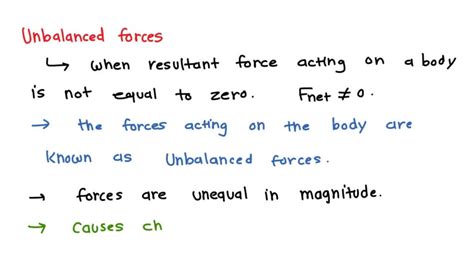 Unbalanced forces
↳ when resultant force acting on a body
is not equal to zero. Fnet ≠ 0.
→ the forces acting on the body are
known as Unbalanced forces.
→ forces are unequal in magnitude.
→ Causes ch